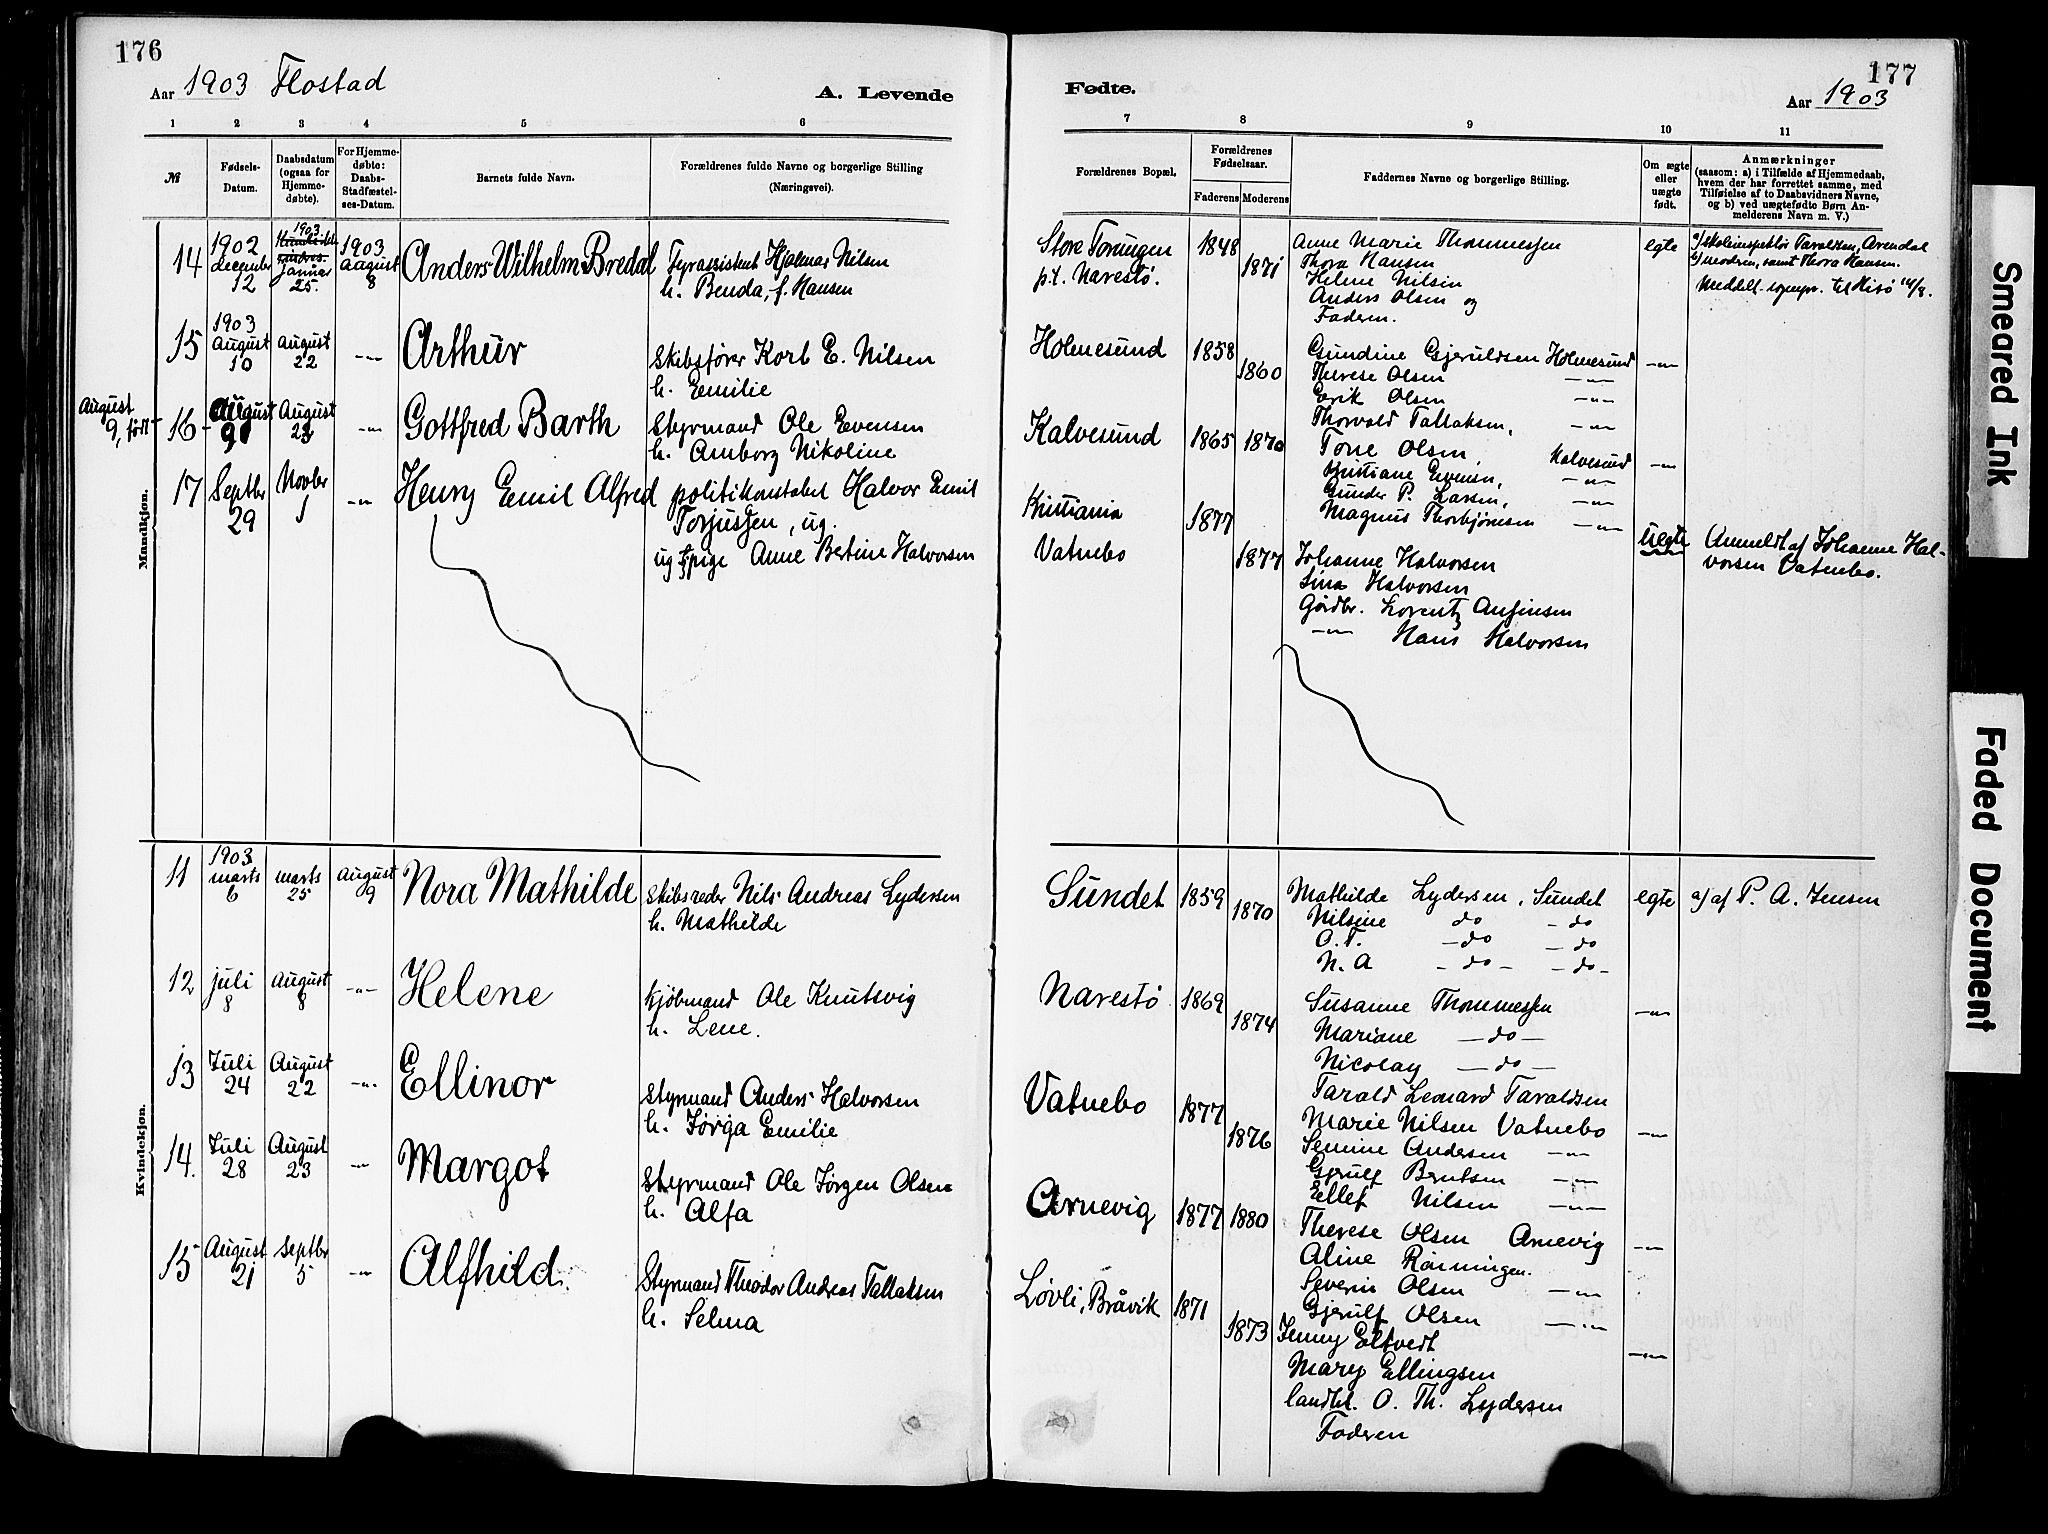 176
Aar 1903 Flostad
A. Levende
1 2 3 4 5 6
№
Fødsels-
Datum.
Daabsdatum
(ogsaa for
Hjemme-
døbte).
For Hjemme-
døbte:
Daabs-
Stadfæstel-
ses-Datum.
Barnets fulde Navn.
Forældrenes fulde Navne og borgerlige Stilling
(Næringsvei).
Mandkjøn.
14
1902
december
12
1903
Januar
25.
1903
August
8
Anders Wilhelm Bredal
Fyrassistent Hjalmar Nilsen
h. Benda, f. Hansen
15
1903
August
10
August
22
-"-
Arthur
Skibsfører Karl E. Nilsen
h. Emilie
August
9, født
16
August
9
August
23
-"-
Gottfred Barth
Styrmand Ole Evensen
h. Amborg Nikoline
17
Septbr
29
Novbr
1
-"-
Henry Emil Alfred
politikonstabel Halvor Emil
Torjussen, ug.
ug pige Anne Bertine Halvorsen
Kvindekjøn.
11
1903
marts
6
marts
25
August
9
Nora Mathilde
Skibsreder Nils Andreas Lydersen
h. Mathilde
12
juli
8
August
8
-"-
Helene
kjøbmand Ole Knutsvig
h. Lene.
13
Juli
24
August
22
-"-
Ellinor
Styrmand Anders Halvorsen
h. Jørga Emilie
14.
Juli
28
August
23
-"-
Margot
Styrmand Ole Jørgen Olsen
h. Alfa
15
August
21
Septbr
5
-"-
Alfhild.
Styrmand Theodor Andreas Tallaksen
h. Selma
177
Fødte.
Aar 1903
7 8 9 10 11
Forældrenes Bopæl.
Forældrenes
Fødselsaar.
Faderens Moderens
Faddernes Navne og borgerlige Stilling.
Om ægte
eller
uægte
født.
Anmærkninger
(saasom: a) i Tilfælde af Hjemmedaab,
hvem der har forrettet samme, med
Tilføielse af to Daabsvidners Navne,
og b) ved uægtefødte Børn An-
melderens Navn m. V.)
Store Torungen
p.t. Narestø.
1848
1871
Anne Marie Thommessen
Thora Hansen
Helene Nilsen
Anders Olsen og
Faderen.
egte
a/ skoleinspektør Taraldsen, Arendal
b/ moderen, samt Thora Hansen.
Holmesund
1858
1860
Gundine Gjeruldsen Holmesund
Therese Olsen -"-
Erik Olsen -"-
Thorvald Tallaksen, -"-
-"-
Kalvesund
1865
1870
Tone Olsen, Kalvesund
Kristiane Evensen, -"-
Gunder P. Larsen, -"-
Magnus Thorbjørnsen -"-
-"-
Kristiania
1877
Vatnebo
1877
Johanne Halvorsen
Sina Halvorsen
Gårdbr. Lorentz Anfinsen
-"- Hans Halvorsen
uegte
Anmeldt af Johanne Hal-
vorsen Vatnebo.
Sundet
1859
1870
Mathilde Lydersen, Sundet
Nilsine do - do
O.T. - do - do
N. A - do - - do -
egte
a/ af P. A. Jensen
Narestø
1869
1874
Susanne Thommessen
Mariane - do -
Nicolay - do -
Tarald Leonard Taraldsen
-"-
Vatnebo
1877
1876
Marie Nilsen Vatnebo
Semine Andersen -"-
Gjerulf Berntsen -"-
Ellef Nilsen -"-
-"-
Arnevig
1877
1880
Therese Olsen Arnevig
Aline Rønningen.
Severin Olsen -"-
Gjerulf Olsen -"-
-"-
Løvli, Bråvik
1871
1873
Jenny Eltvedt
Mary Ellingsen
landhl. O. Th. Lydersen
Faderen
-"-
Smeared Ink
Faded Document